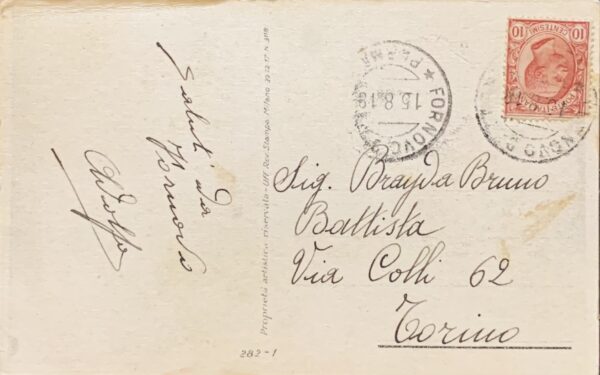 Saluti da
Fornovo
Adolfo
Proprietà artistica riservata - Uff. Rev. Stampa Milano
282-1
FORNOVO
PARMA
15.8.1
10
CENTESIMI
NOVO
Sig. Brayda Bruno
Battista
Via Colli 62
Torino